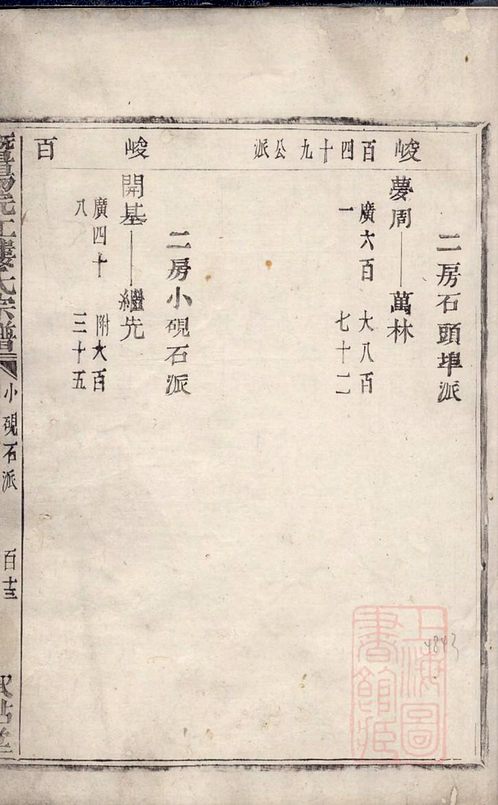 峻百四十九公派
二房石頭埠派
夢周——萬林
廣六百一
大八百七十二
峻百
二房小硯石派
開基——繼先
廣四十八
附大百三十五
暨陽浣江樓氏宗譜
小硯石派
百十三
上海圖書館藏
4843